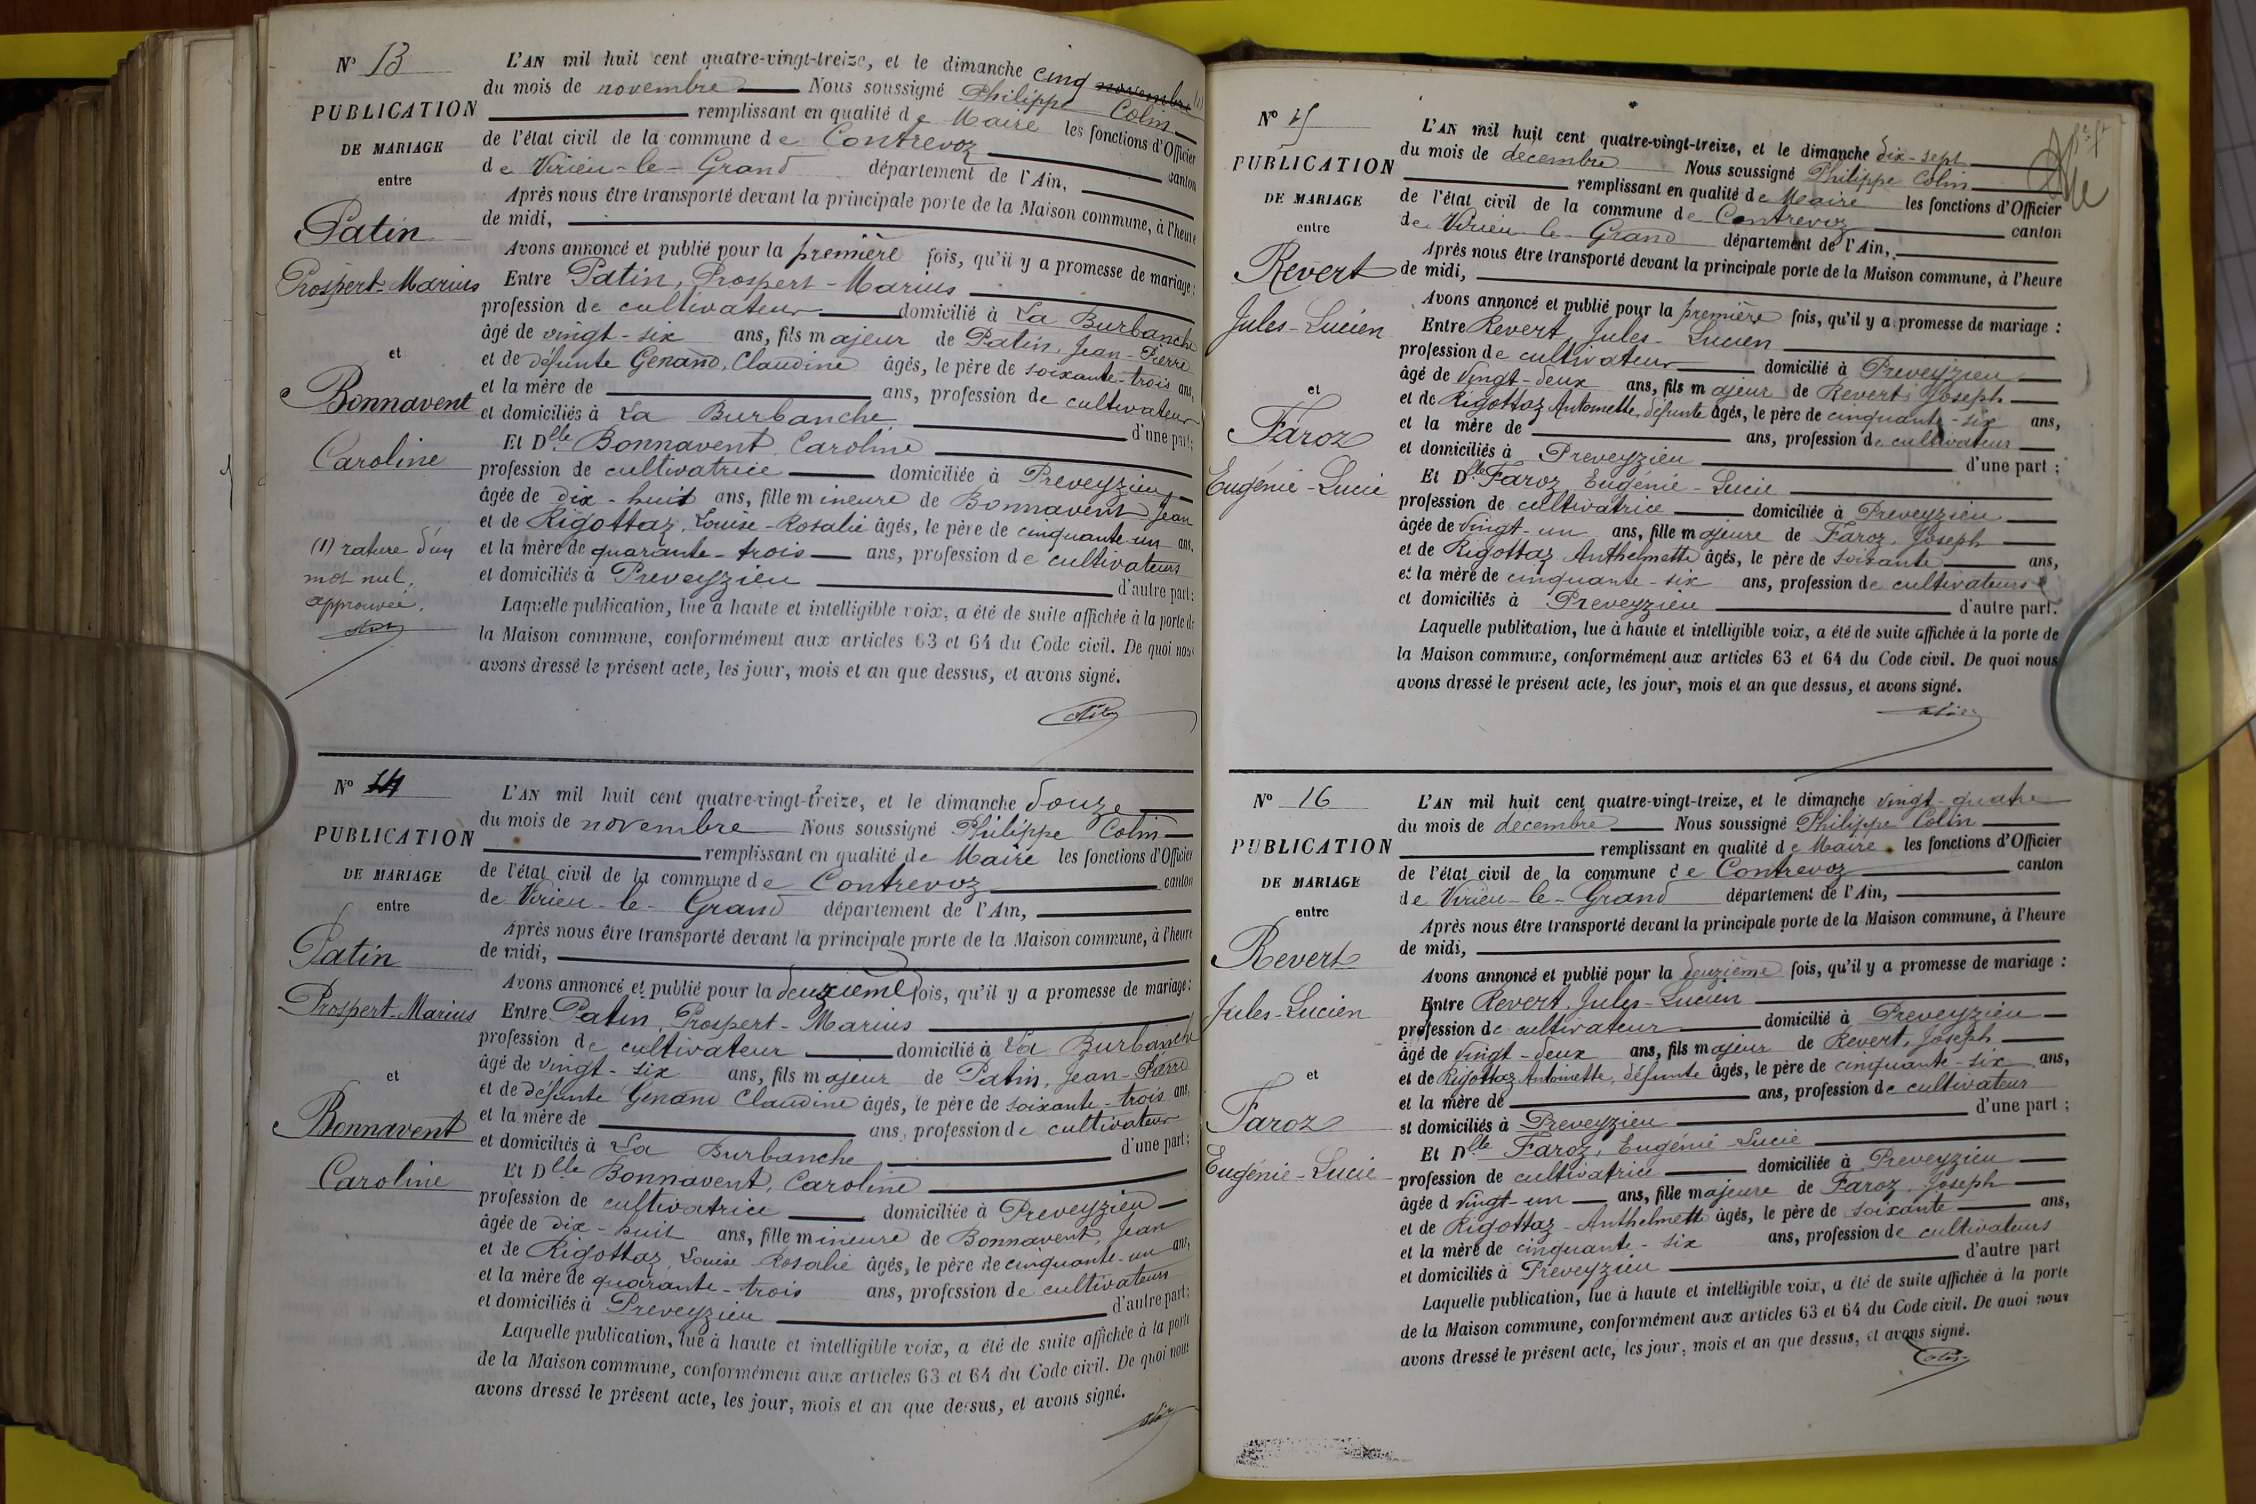 N° 13
PUBLICATION
DE MARIAGE
entre
Patin
Prospert-Marius
et
Bonnavent
Caroline
(1) rature d'un
mot nul,
approuvée.
L'AN mil huit cent quatre-vingt-treize, et le dimanche cinq novembre (1)
du mois de novembre Nous soussigné Philippe Colin
remplissant en qualité de Maire les fonctions d'Officier
de l'état civil de la commune de Contrevoz canton
de Virieu-le-Grand département de l'Ain,
Après nous être transporté devant la principale porte de la Maison commune, à l'heure
de midi,
Avons annoncé et publié pour la première fois, qu'il y a promesse de mariage :
Entre Patin, Prospert-Marius
profession de cultivateur domicilié à La Burbanche
âgé de vingt-six ans, fils majeur de Patin, Jean-Pierre
et de défunte Genand, Claudine âgés, le père de soixante-trois ans,
et la mère de ans, profession de cultivateur
et domiciliés à La Burbanche, d'une part ;
Et Dlle Bonnavent, Caroline
profession de cultivatrice domiciliée à Preveyzieu,
âgée de dix-huit ans, fille mineure de Bonnavent Jean
et de Rigottaz, Louise-Rosalie âgés, le père de cinquante-un ans,
et la mère de quarante-trois ans, profession de cultivateurs
et domiciliés à Preveyzieu d'autre part ;
Laquelle publication, lue à haute et intelligible voix, a été de suite affichée à la porte de
la Maison commune, conformément aux articles 63 et 64 du Code civil. De quoi nous
avons dressé le présent acte, les jour, mois et an que dessus, et avons signé.
N° 14
PUBLICATION
DE MARIAGE
entre
Patin
Prospert-Marius
et
Bonnavent
Caroline
L'AN mil huit cent quatre-vingt-treize, et le dimanche douze
du mois de novembre Nous soussigné Philippe Colin
remplissant en qualité de Maire les fonctions d'Officier
de l'état civil de la commune de Contrevoz canton
de Virieu-le-Grand département de l'Ain,
Après nous être transporté devant la principale porte de la Maison commune, à l'heure
de midi,
Avons annoncé et publié pour la deuxième fois, qu'il y a promesse de mariage :
Entre Patin, Prospert-Marius
profession de cultivateur domicilié à La Burbanche
âgé de vingt-six ans, fils majeur de Patin, Jean-Pierre
et de défunte Genand Claudine âgés, le père de soixante-trois ans,
et la mère de ans, profession de cultivateur
et domiciliés à La Burbanche, d'une part ;
Et Dlle Bonnavent, Caroline
profession de cultivatrice domiciliée à Preveyzieu
âgée de dix-huit ans, fille mineure de Bonnavent, Jean
et de Rigottaz, Louise Rosalie âgés, le père de cinquante-un ans,
et la mère de quarante-trois ans, profession de cultivateurs
et domiciliés à Preveyzieu d'autre part ;
Laquelle publication, lue à haute et intelligible voix, a été de suite affichée à la porte
de la Maison commune, conformément aux articles 63 et 64 du Code civil. De quoi nous
avons dressé le présent acte, les jour, mois et an que dessus, et avons signé.
N° 15
PUBLICATION
DE MARIAGE
entre
Revert
Jules-Lucien
et
Faroz
Eugénie-Lucie
L'AN mil huit cent quatre-vingt-treize, et le dimanche dix-sept
du mois de décembre Nous soussigné Philippe Colin
remplissant en qualité de Maire les fonctions d'Officier
de l'état civil de la commune de Contrevoz canton
de Virieu-le-Grand département de l'Ain,
Après nous être transporté devant la principale porte de la Maison commune, à l'heure
de midi,
Avons annoncé et publié pour la première fois, qu'il y a promesse de mariage :
Entre Revert, Jules-Lucien
profession de cultivateur domicilié à Preveyzieu
âgé de vingt-deux ans, fils majeur de Revert, Joseph
et de Rigottaz Antoinette, défunte âgés, le père de cinquante-six ans,
et la mère de ans, profession de cultivateur
et domiciliés à Preveyzieu d'une part ;
Et Dlle Faroz, Eugénie-Lucie
profession de cultivatrice domiciliée à Preveyzieu
âgée de vingt-un ans, fille majeure de Faroz, Joseph
et de Rigottaz Anthelmette âgés, le père de soixante ans,
et la mère de cinquante-six ans, profession de cultivateurs
et domiciliés à Preveyzieu d'autre part.
Laquelle publication, lue à haute et intelligible voix, a été de suite affichée à la porte de
la Maison commune, conformément aux articles 63 et 64 du Code civil. De quoi nous
avons dressé le présent acte, les jour, mois et an que dessus, et avons signé.
N° 16
PUBLICATION
DE MARIAGE
entre
Revert
Jules-Lucien
et
Faroz
Eugénie-Lucie
L'AN mil huit cent quatre-vingt-treize, et le dimanche vingt-quatre
du mois de décembre Nous soussigné Philippe Colin
remplissant en qualité de Maire les fonctions d'Officier
de l'état civil de la commune de Contrevoz canton
de Virieu-le-Grand département de l'Ain,
Après nous être transporté devant la principale porte de la Maison commune, à l'heure
de midi,
Avons annoncé et publié pour la deuzième fois, qu'il y a promesse de mariage :
Entre Revert, Jules-Lucien
profession de cultivateur domicilié à Preveyzieu
âgé de vingt-deux ans, fils majeur de Revert, Joseph
et de Rigottaz Antoinette, défunte âgés, le père de cinquante-six ans,
et la mère de ans, profession de cultivateur
et domiciliés à Preveyzieu d'une part ;
Et Dlle Faroz, Eugénie Lucie
profession de cultivatrice domiciliée à Preveyzieu
âgée d vingt-un ans, fille majeure de Faroz, Joseph
et de Rigottaz-Anthelmette âgés, le père de soixante ans,
et la mère de cinquante-six ans, profession de cultivateurs
et domiciliés à Preveyzieu d'autre part
Laquelle publication, lue à haute et intelligible voix, a été de suite affichée à la porte
de la Maison commune, conformément aux articles 63 et 64 du Code civil. De quoi nous
avons dressé le présent acte, les jour, mois et an que dessus, et avons signé.
Colin